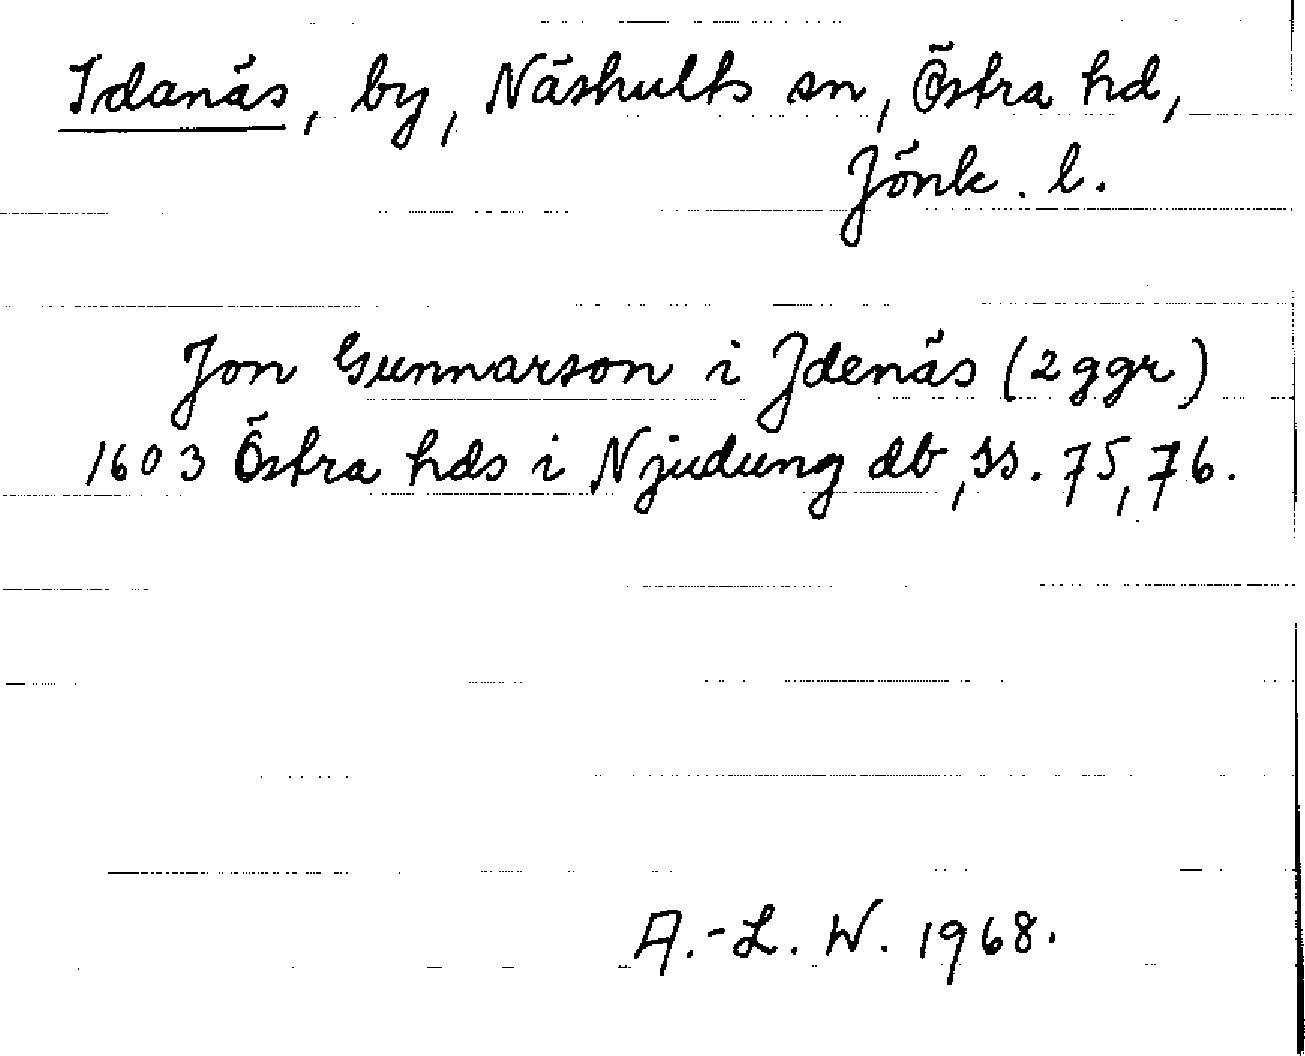 Idanäs, by, Näshults sn, Östra hd,
Jönk. l.
Jon Gunnarson i Jdenäs (2 ggr)
1603 Östra hds i Njudung db, ss. 75, 76.
A.-L. W. 1968.